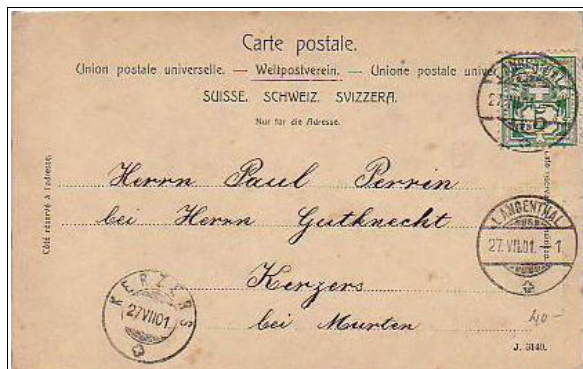 Carte postale.
Union postale universelle. — Weltpostverein. — Unione postale
SUISSE. SCHWEIZ. SVIZZERA.
Nur für die Adresse.
Côté réservé à l'adresse.
LANGENTHAL
27.
5
Herrn Paul Perrin
bei Herrn Gutknecht
Kerzers
bei Murten
LANGENTHAL
27.VII.01. 1
KERZERS
27VII01
40-
J. 3140.